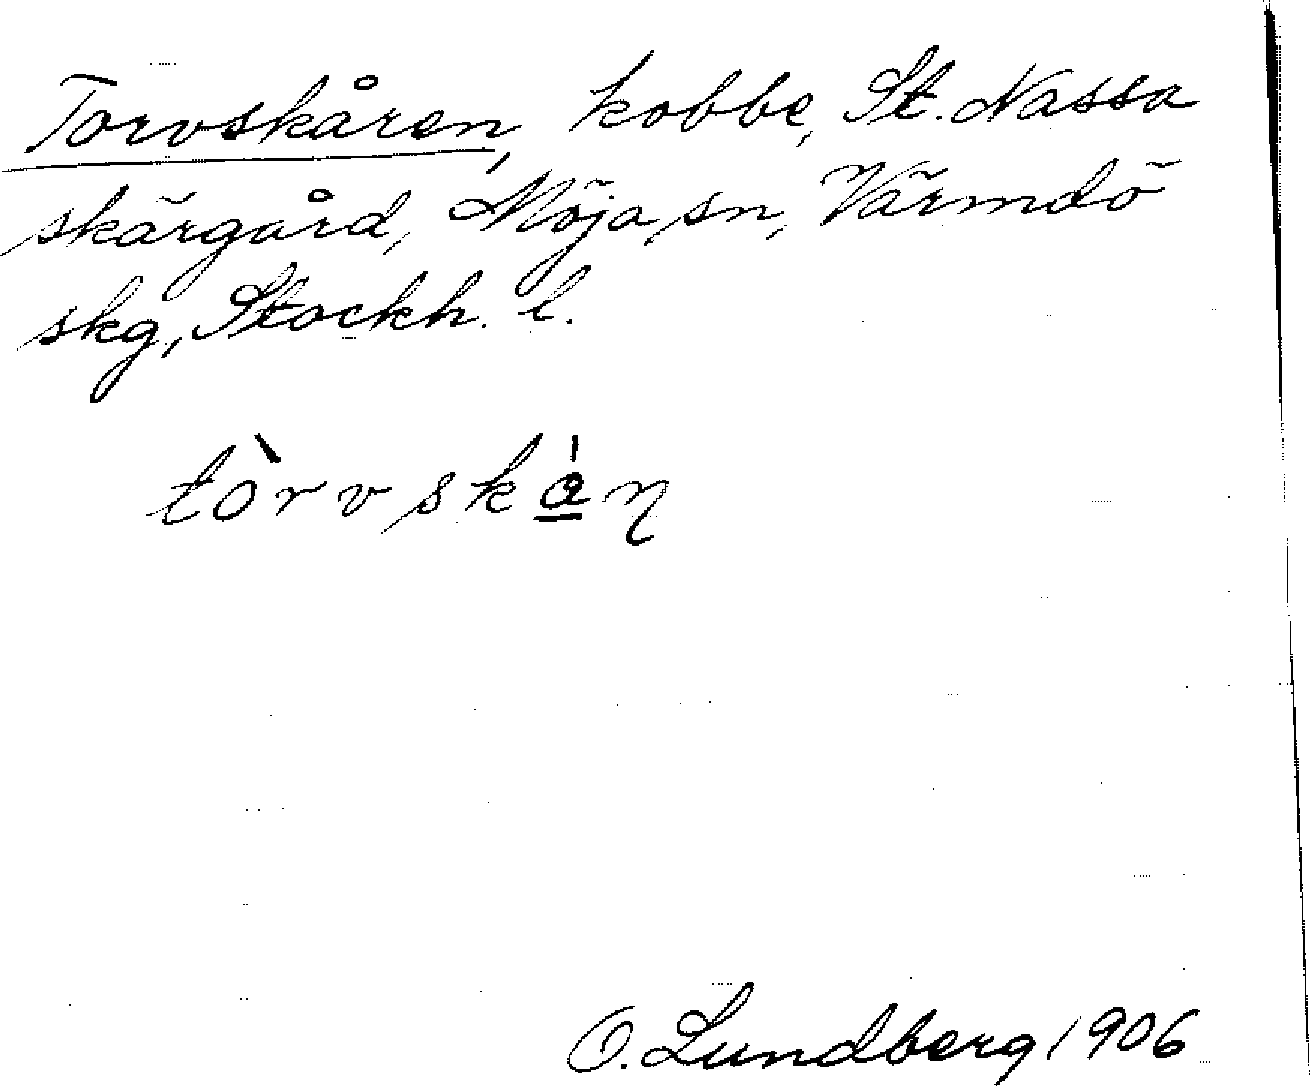 Torvskåren, kobbe, St. Nassa
skärgård, Möja sn, Värmdö
skg, Stockh. l.
tòrvskǻ̲ɳ
O. Lundberg 1906